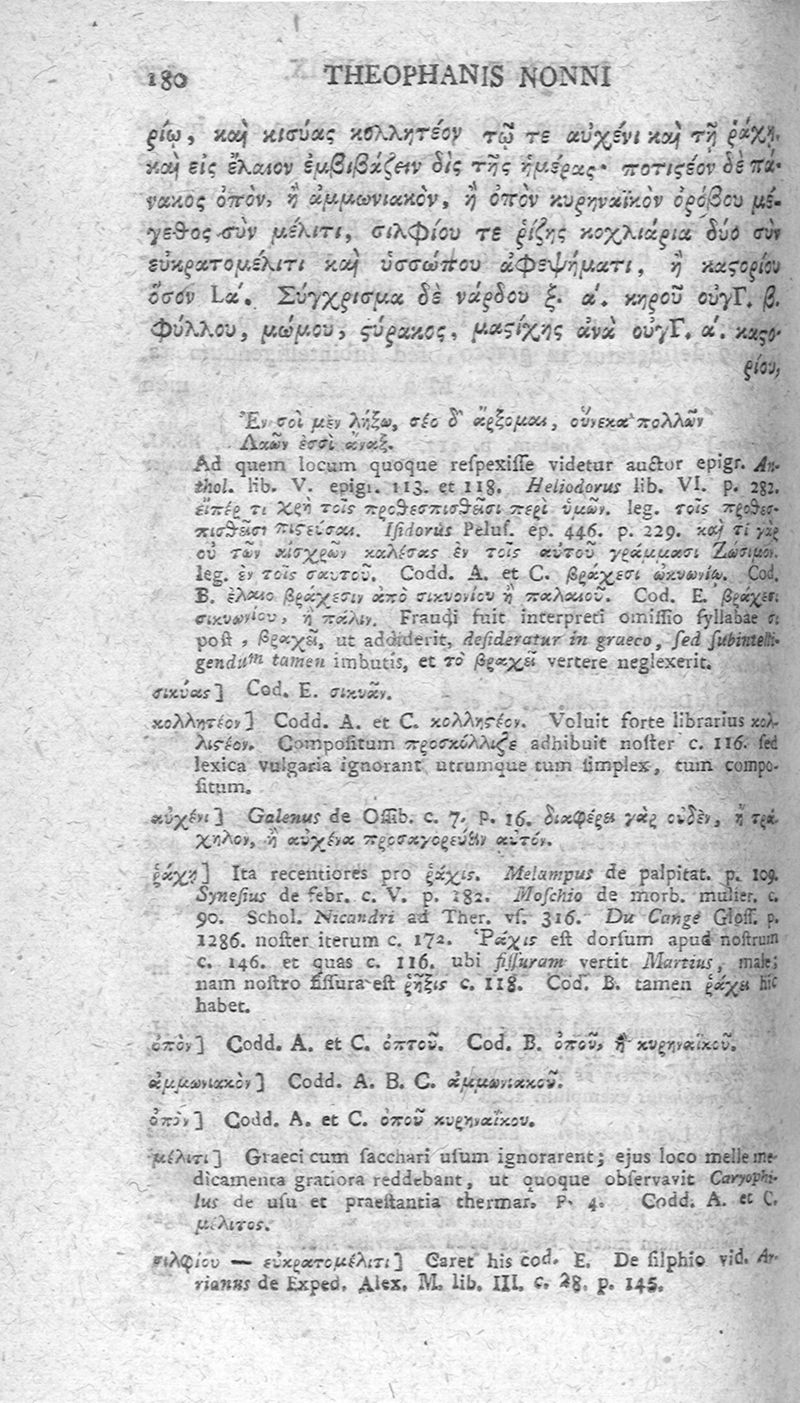 180 THEOPHANIS NONNI
ρίῳ, καὶ κισύας κολλητέον τῷ τε αὐχένι καὶ τῇ ῥάχῃ.
καὶ εἰς ἔλαιον ἐμβιβάζειν δὶς τῆς ἡμέρας· ποτιστέον δὲ πά-
νακος ὀπὸν, ἢ ἀμμωνιακὸν, ἢ ὀπὸν κυρηναϊκὸν ὀρόβου μέ-
γεθος σὺν μέλιτι, σιλφίου τε ῥίζης κοχλιάρια δύο σὺν
εὐκρατομέλιτι καὶ ὑσσώπου ἀφεψήματι, ἢ καστορίου
ὅσον Lα΄. Σύγχρισμα δὲ νάρδου ξ. α΄. κηροῦ οὐγΓ. β.
Φύλλου, μώμου, στύρακος, μαστίχης ἀνὰ οὐγΓ. α΄. καστο-
ρίου,
Ἐν σοὶ μὲν λήξω, σέο δ᾽ ἄρξομαι, οὕνεκα πολλῶν
Λαῶν ἐσσὶ ἄναξ.
Ad quem locum quoque reſpexiſſe videtur auctor epigr. An-
thol. lib. V. epigr. 113. et 118. Heliodorus lib. VI. p. 282.
εἴπέρ τι χρὴ τοῖς προθεσπισθεῖσι περὶ ὑμῶν. leg. τοῖς προθεσ-
πισθεῖσι πιστεῦσαι. Iſidorus Peluſ. ep. 446. p. 229. καὶ τί γὰρ
οὐ τῶν αἰσχρῶν καλέσας ἐν τοῖς αὐτοῦ γράμμασι Ζώσιμον.
leg. ἐν τοῖς σαυτοῦ. Codd. A. et C. βράχεσι ὠκυωνίῳ. Cod.
B. ἐλαιο βράχεσιν ἀπὸ σικυονίου ἢ παλαιοῦ. Cod. E. βράχεσι
σικυωνίου, ἢ πάλιν. Fraudi fuit interpreti omiſſio ſyllabae σι
poſt, βραχεῖ, ut addiderit, deſideratur in graeco, ſed ſubintelli-
gendum tamen imbutis, et τὸ βραχεῖ vertere neglexerit.
σικύας] Cod. E. σικυᾶν.
κολλητέον] Codd. A. et C. κολλιστέον. Voluit forte librarius κολ-
λιστέον. Compoſitum προσκόλλιζε adhibuit noſter c. 116. ſed
lexica vulgaria ignorant utrumque tum ſimplex, tum compo-
ſitum.
αὐχένι] Galenus de Oſſib. c. 7. p. 16. διαφέρει γὰρ οὐδὲν, ἢ τρά-
χηλον, ἢ αὐχένα προσαγορεύειν αὐτόν.
ῥάχῃ] Ita recentiores pro ῥάχις. Melampus de palpitat. p. 109.
Syneſius de febr. c. V. p. 182. Moſchio de morb. mulier. c.
90. Schol. Nicandri ad Ther. vſ. 316. Du Cange Gloſſ. p.
1286. noſter iterum c. 172. Ῥάχις eſt dorſum apud noſtrum
c. 146. et quas c. 116. ubi fiſſuram vertit Martius, male;
nam noſtro fiſſura eſt ῥῆξις c. 118. Cod. B. tamen ῥάχει hic
habet.
ὀπὸν] Codd. A. et C. ὀπτοῦ. Cod. B. ὀποῦ, ἢ κυρηναϊκοῦ.
ἀμμωνιακὸν] Codd. A. B. C. ἀμμωνιακοῦ.
ὀπὸν] Codd. A. et C. ὀποῦ κυρηναΐκου.
μέλιτι] Graeci cum ſacchari uſum ignorarent; ejus loco melle me-
dicamenta gratiora reddebant, ut quoque obſervavit Caryophi-
lus de uſu et praeſtantia thermar. p. 4. Codd. A. et C.
μέλιτος.
σιλφίου — εὐκρατομέλιτι] Caret his cod. E. De ſilphio vid. Ar-
rianus de Exped. Alex. M. lib. III. c. 28. p. 145.